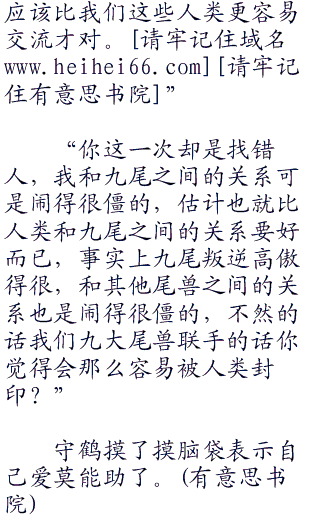 应该比我们这些人类更容易
交流才对。[请牢记住域名
www.heihei66.com][请牢记
住有意思书院]”
“你这一次却是找错
人，我和九尾之间的关系可
是闹得很僵的，估计也就比
人类和九尾之间的关系要好
而已，事实上九尾叛逆高傲
得很，和其他尾兽之间的关
系也是闹得很僵的，不然的
话我们九大尾兽联手的话你
觉得会那么容易被人类封
印？”
守鹤摸了摸脑袋表示自
己爱莫能助了。(有意思书
院)